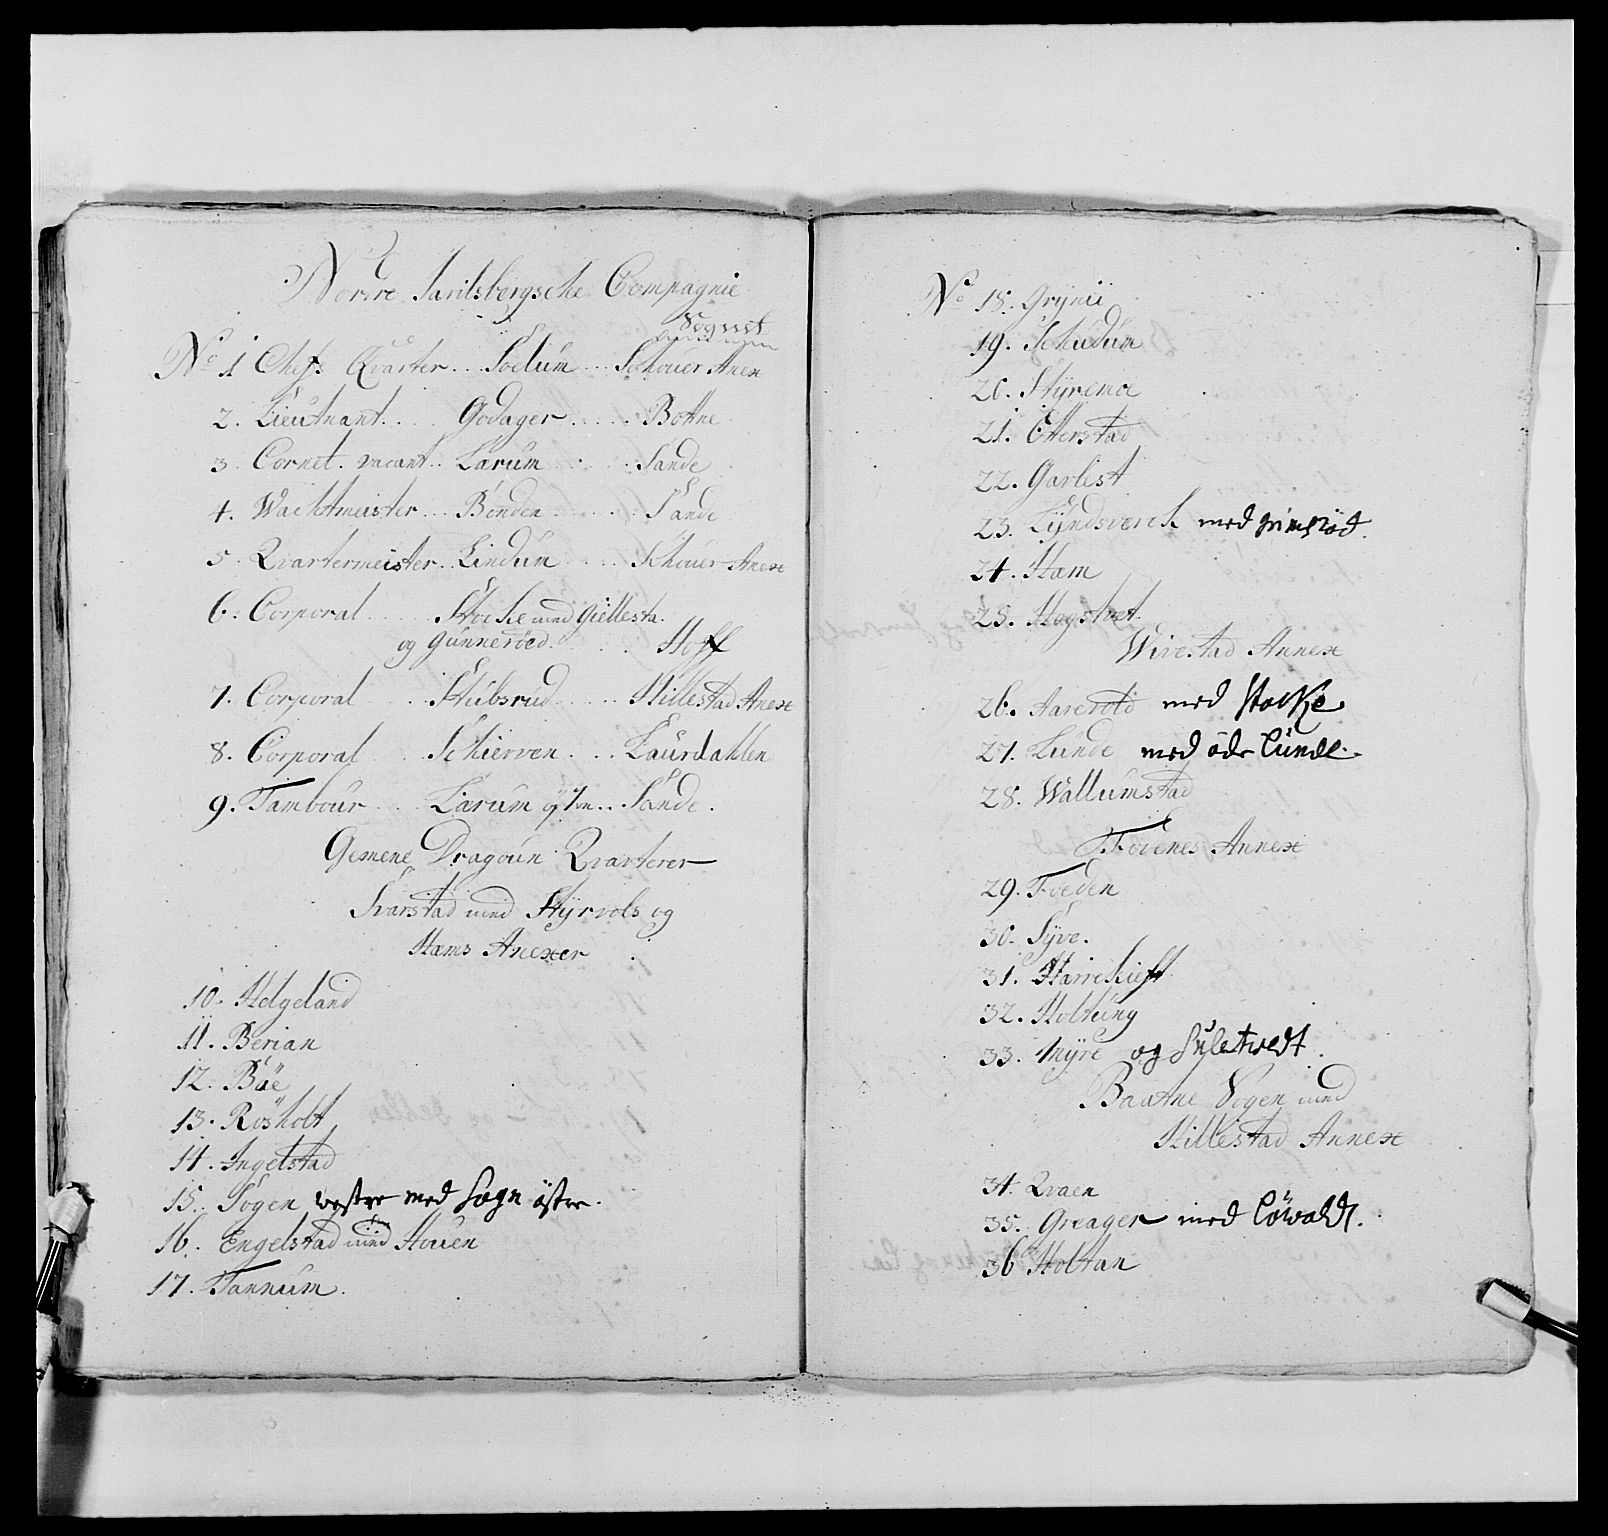 Nordre Jarilsbergsche Compagnie
Sognet
No 1 Chefs Qvarter .. Soelum ... Schouer Anex
2. Lieutnant .... Godager ..... Bottne
3. Cornet. vacant .. Larum ..... Sande
4. Wachtmeister ... Bonden ..... Sande
5. Qvartermeister .. Lindum .... Schouer Anex
6. Corporal .... Stocke med Giellesta.
og Gunneröed. .... Hoff
7. Corporal .... Stubsrud ..... Hillestad Anex
8. Corporal .... Schierven .... Laurdahlen
9. Tambour .... Larum ... Sande.
Gemene Dragoun Qvarterer
Svarstad med Styrvols og
Hams Anexer
10. Helgeland
11. Berian
12. Böe
13. Rösholt
14. Ingelstad
15. Sogen vestre med Sogn östre.
16. Engelstad med Houen
17. Tannum.
No 18. Grÿnii
19. Schudum
20. Stÿremoe
21. Etterstad
22. Garlest
23. Lÿndsverch med grimsröd.
24. Ham
25. Hogstvet
Wivestad Annex
26. Aareröd med Stokke.
27. Lunde med öde Lunde.
28. Wallumstad
Fovenes Annex
29. Foeden
30. Sÿve.
31. Harrekieft
32. Holtung
33. Myre og Sulutvedt.
Baatne Sogen med
Hillestad Annex
34. Qvaen
35. Greager med Löwaldt.
36 Holtan